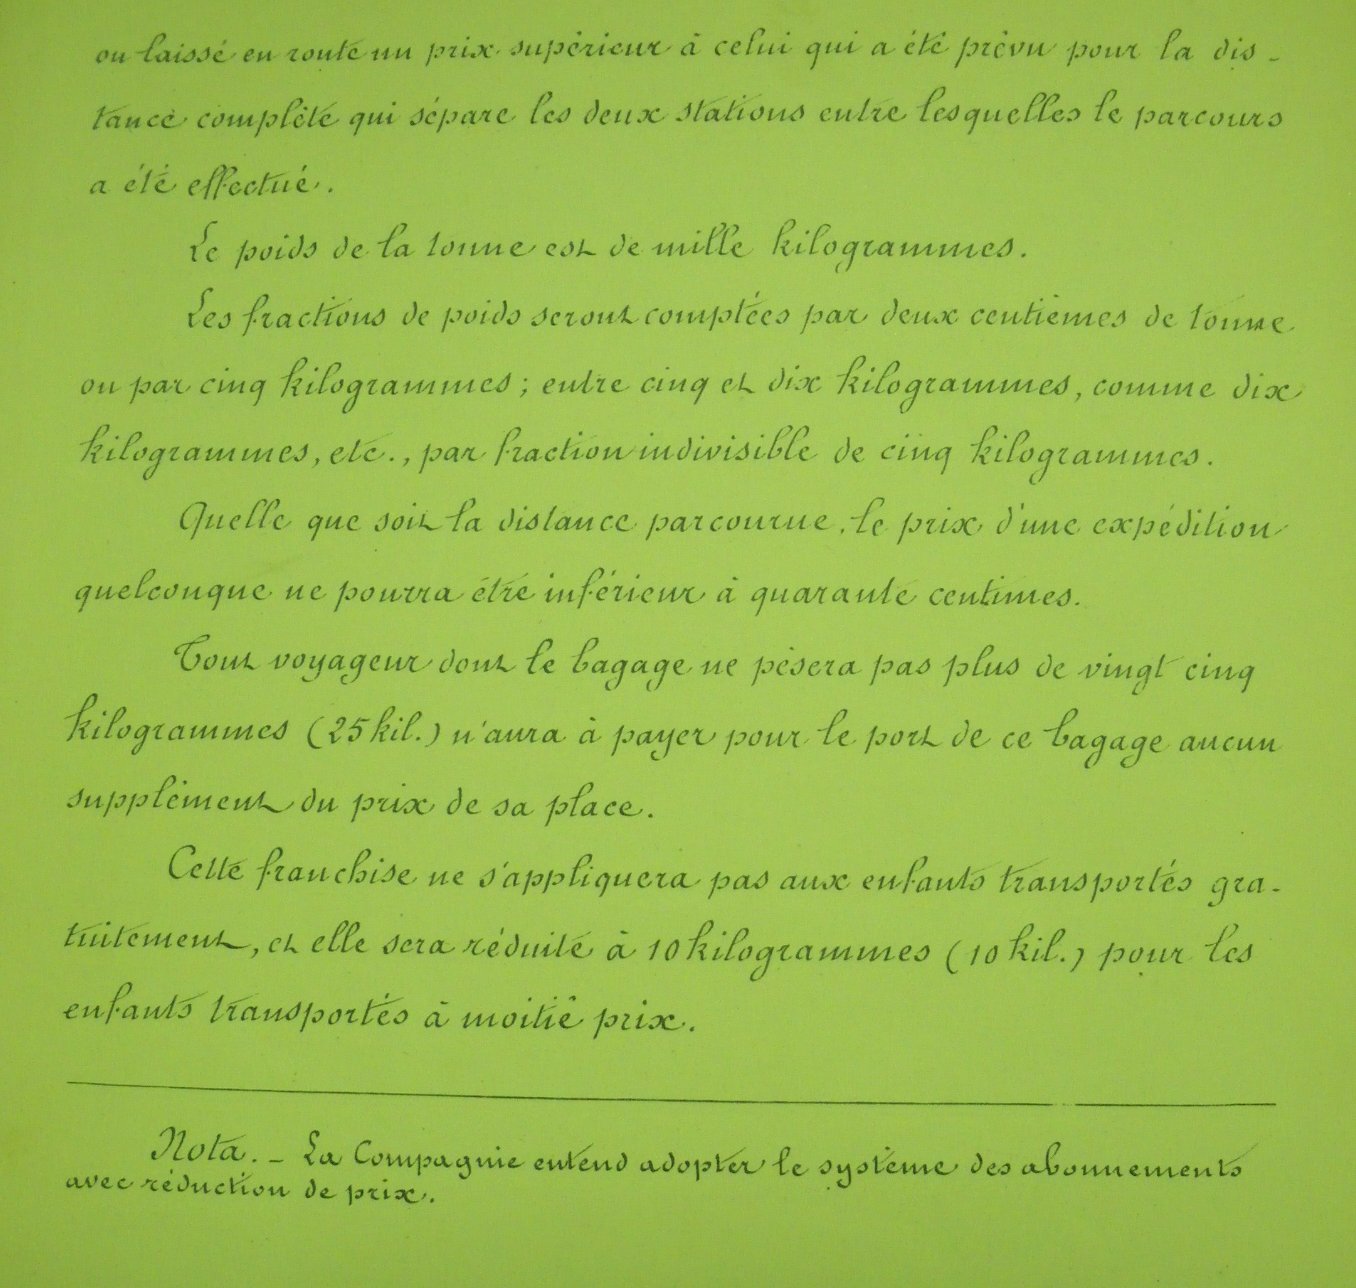 ou laissé en route un prix supérieur à celui qui a été prévu pour la dis-
tance complète qui sépare les deux stations entre lesquelles le parcours
a été effectué.
Le poids de la tonne est de mille kilogrammes.
Les fractions de poids seront comptées par deux centièmes de tonne
ou par cinq kilogrammes; entre cinq et dix kilogrammes, comme dix
kilogrammes, etc., par fraction indivisible de cinq kilogrammes.
Quelle que soit la distance parcourue, le prix d'une expédition
quelconque ne pourra être inférieur à quarante centimes.
Tout voyageur dont le bagage ne pèsera pas plus de vingt cinq
kilogrammes (25 kil.) n'aura à payer pour le port de ce bagage aucun
supplément du prix de sa place.
Cette franchise ne s'appliquera pas aux enfants transportés gra-
tuitement, et elle sera réduite à 10 kilogrammes (10 kil.) pour les
enfants transportés à moitié prix.
Nota. - La Compagnie entend adopter le système des abonnements
avec réduction de prix.